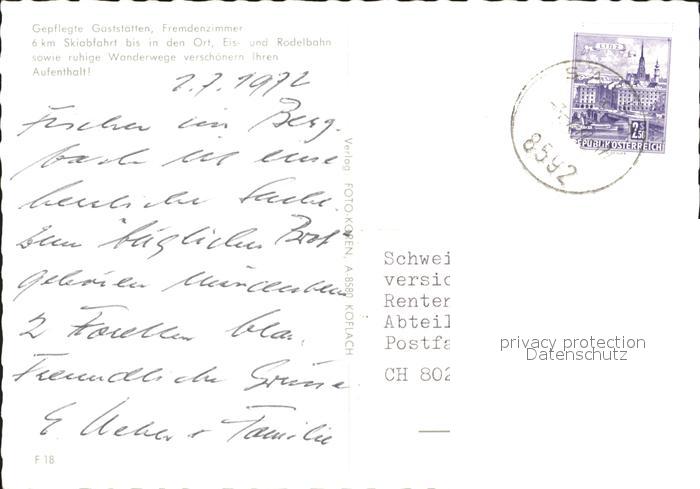 Gepflegte Gaststätten, Fremdenzimmer
6 km Skiabfahrt bis in den Ort, Eis- und Rodelbahn
sowie ruhige Wanderwege verschönern Ihren
Aufenthalt!
2.7.1972
Fischen im Berg-
bach ist eine
herrliche Sache.
Zum "täglichen Brot"
gehören mindestens
2 Forellen blau.
Freundliche Grüsse
E. Weber + Familie
F 18
Verlag FOTO-KOREN, A-8580 KÖFLACH
LINZ
2.50
REPUBLIK ÖSTERREICH
8592
Schwei
versic
Renten
Abteil
Postfa
CH 802
privacy protection
Datenschutz